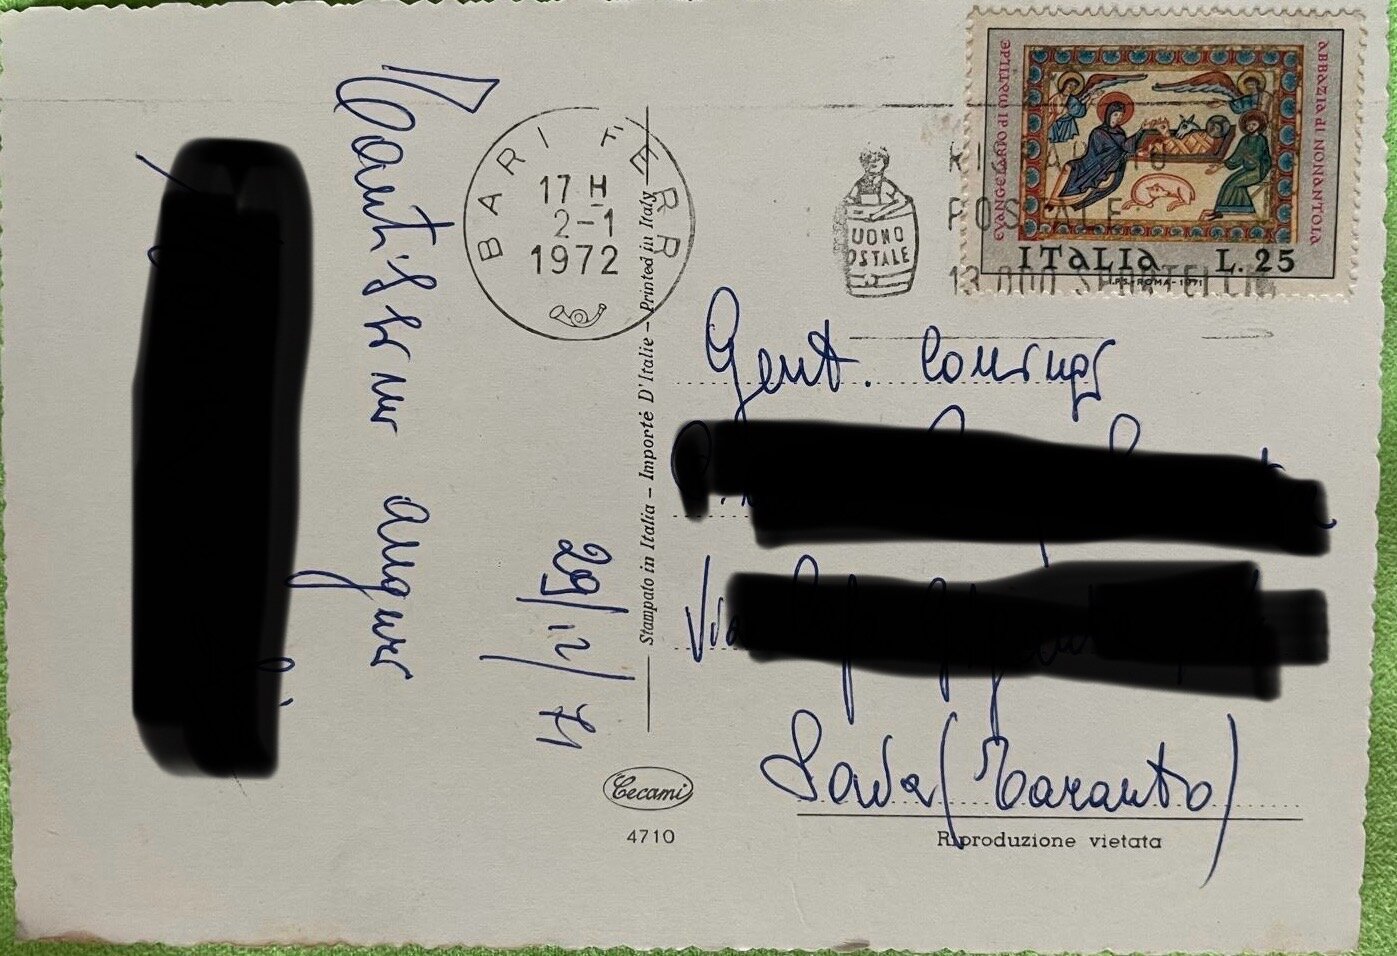 EVANGELARIO di MATILDE
ABBAZIA di NONANTOLA
ITALIA L. 25
I.P.S.-ROMA-1971
BARI FERR
17 H
2-1
1972
BUONO
POSTALE
POSTALE
13.000 SPORTELLI
Gent. Coniugi
Via
Sava (Taranto)
Riproduzione vietata
Stampato in Italia – Importé D'Italie – Printed in Italy
Cecami
4710
29/12/71
auguri